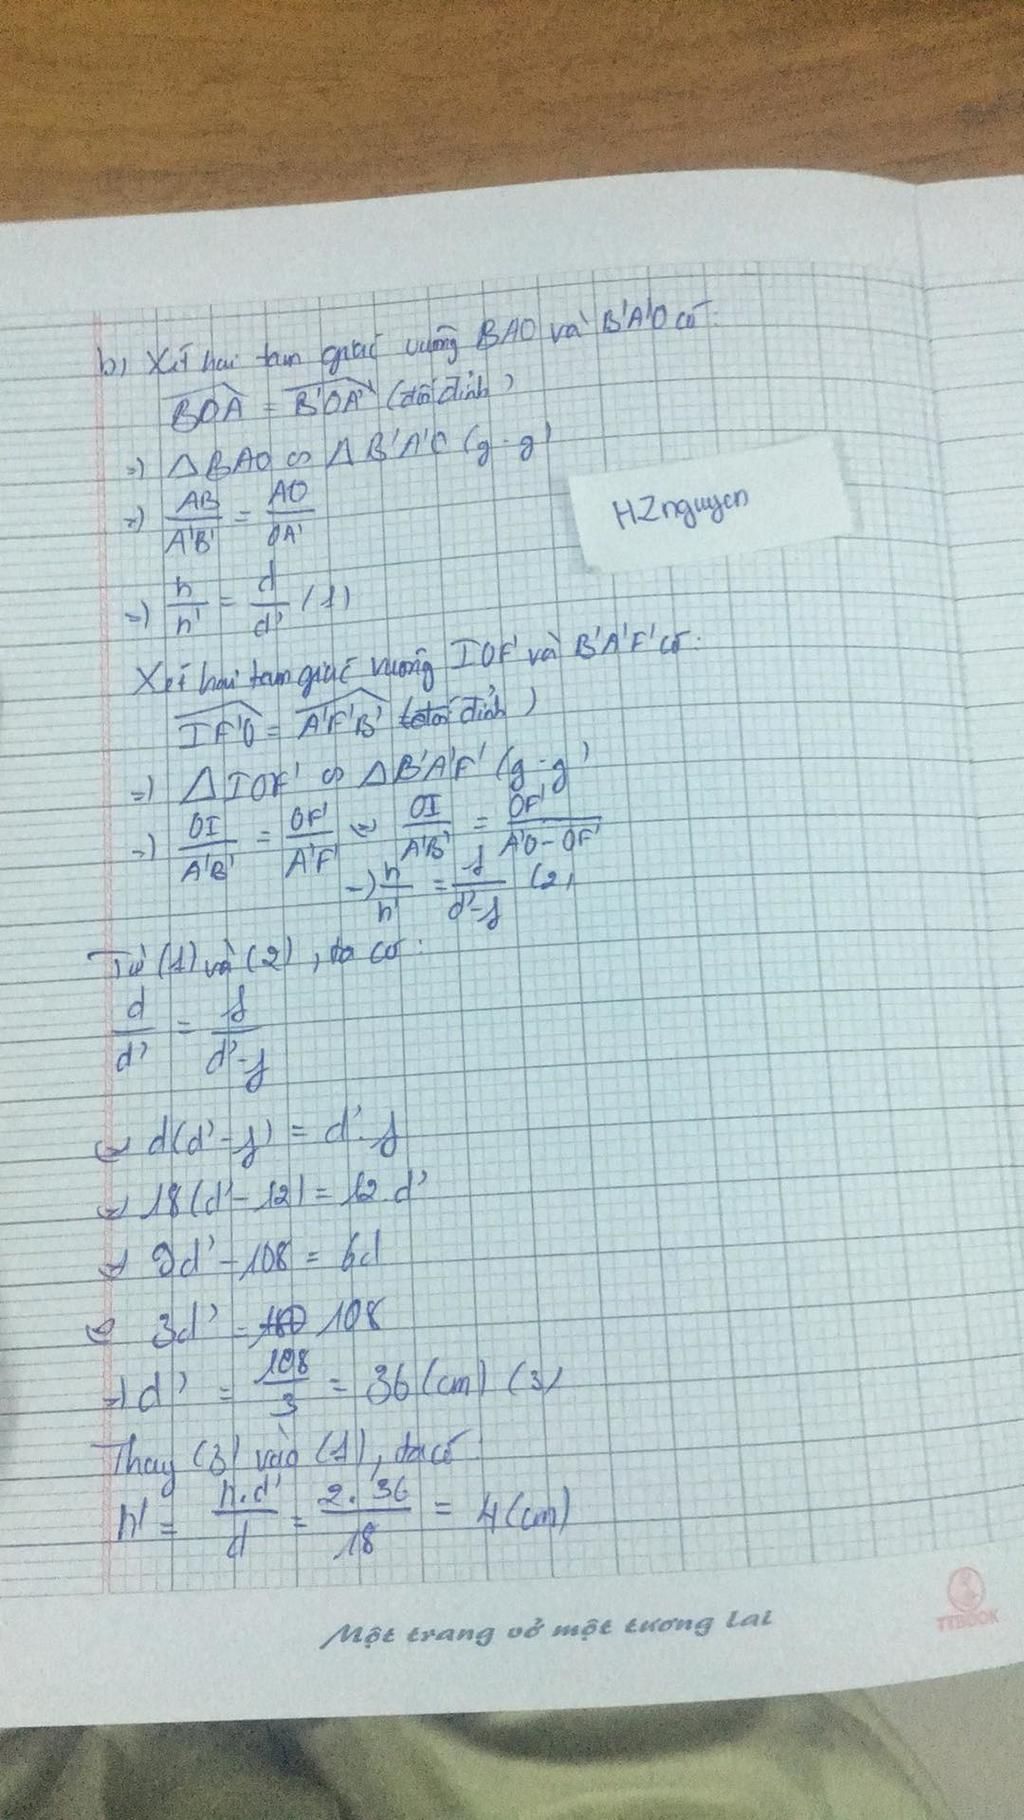 b) Xét hai tam giác vuông BAO và B'A'O có:
BOA = B'OA' (đối đỉnh)
=) ΔBAO ∽ ΔB'A'O (g-g)
=) AB/A'B' = AO/OA'
=) h/h' = d/d' (1)
HZnguyen
Xét hai tam giác vuông IOF' và B'A'F' có:
IF'O = A'F'B' (đối đỉnh)
=) ΔIOF' ∽ ΔB'A'F' (g-g)
=) OI/A'B' = OF'/A'F' (=) OI/A'B' = OF'/A'O-OF'
=) h/h' = f/d'-f (2)
Từ (1) và (2), ta có:
d/d' = f/d'-f
(=) d(d'-f) = d'.f
(=) 18(d'-12) = 12.d'
(=) 9d' - 108 = 6d
(=) 3d' = 108
=) d' = 108/3 = 36 (cm) (3)
Thay (3) vào (1), ta có:
h' = h.d'/d = 2.36/18 = 4 (cm)
Một trang vở một tương lai
TTBOOK